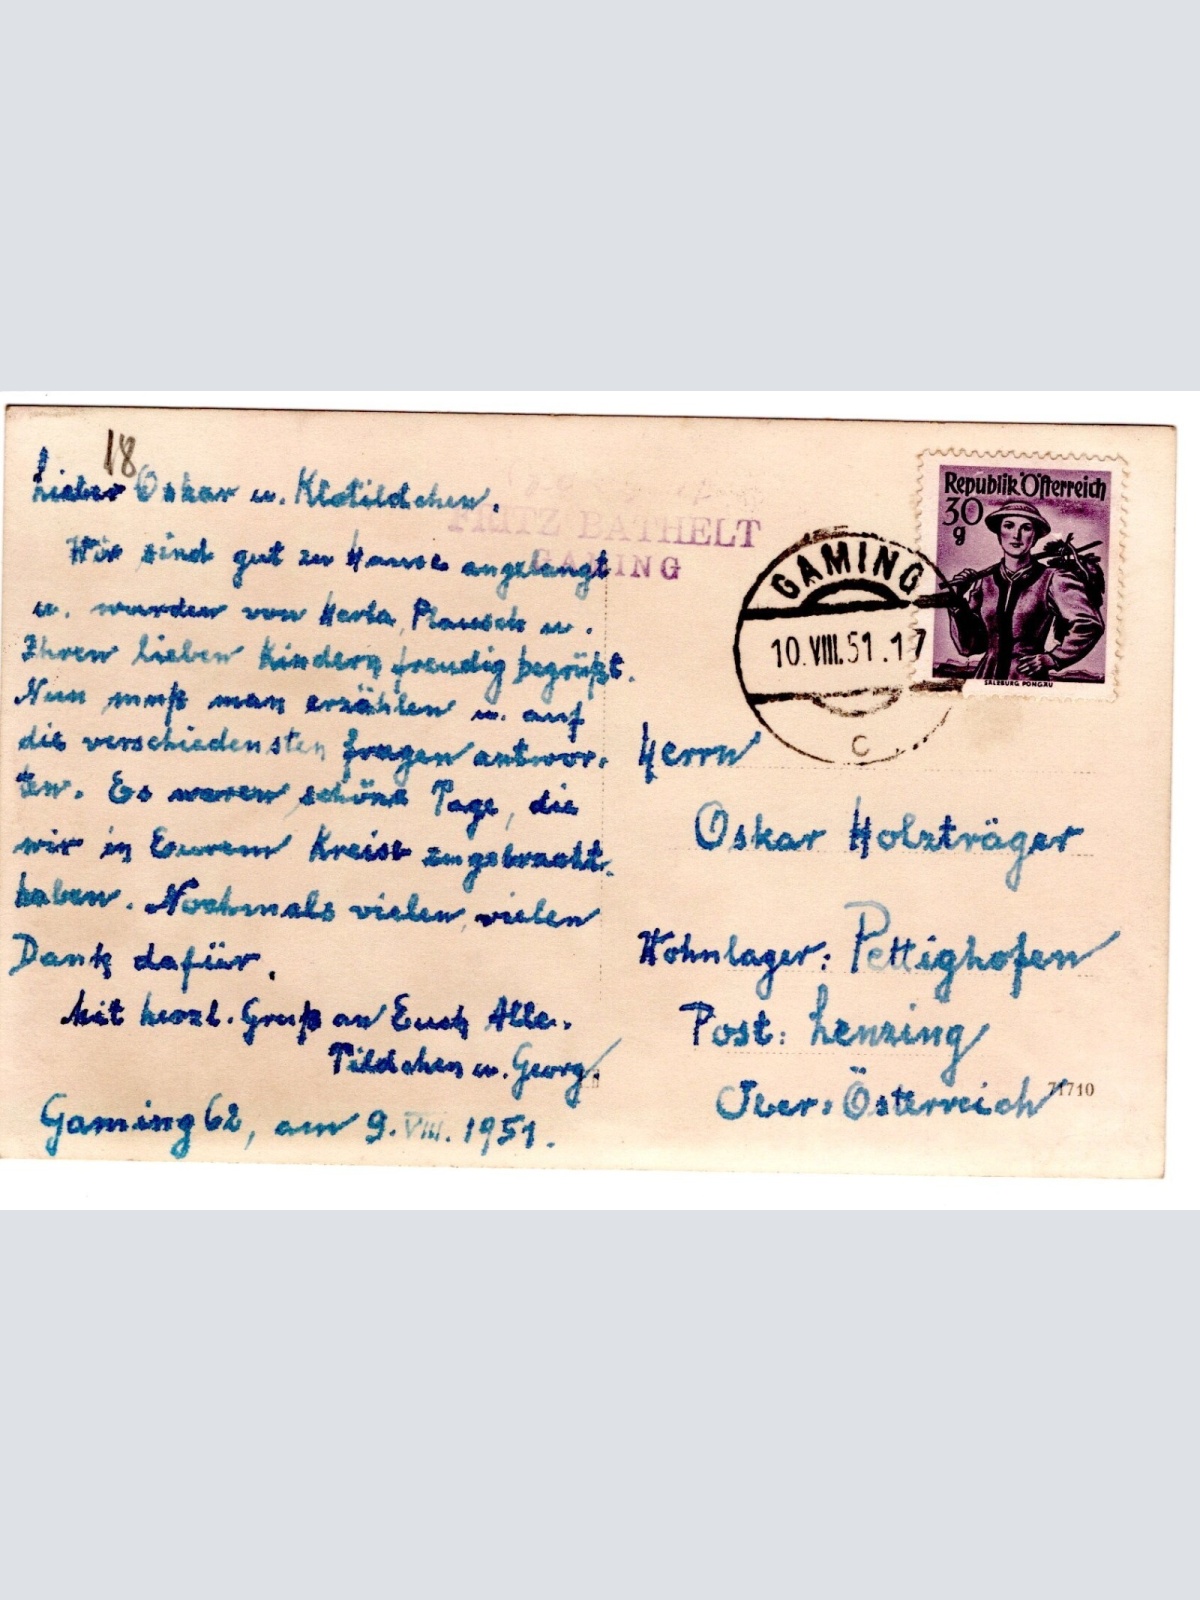 18
Lieber Oskar u. Klotildchen.
Wir sind gut zu Hause angelangt
u. wurden von Herta, u.
Ihren lieben Kindern freudig begrüßt.
Nun muß man erzählen u. auf
die verschiedensten Fragen antwor-
ten. Es waren schöne Tage, die
wir in Eurem Kreise zugebracht
haben. Nochmals vielen, vielen
Dank dafür.
Mit herzl. Gruß an Euch Alle.
Tildchen u. Georg.
Gaming 62, am 9. VIII. 1951.
FRITZ BATHELT
GAMING
GAMING
10.VIII.51.17
C
Republik Österreich
30
g
SALZBURG PONGAU
Herrn
Oskar Holzträger
Wohnlager: Pettighofen
Post: Lenzing
Ober-Österreich
71710